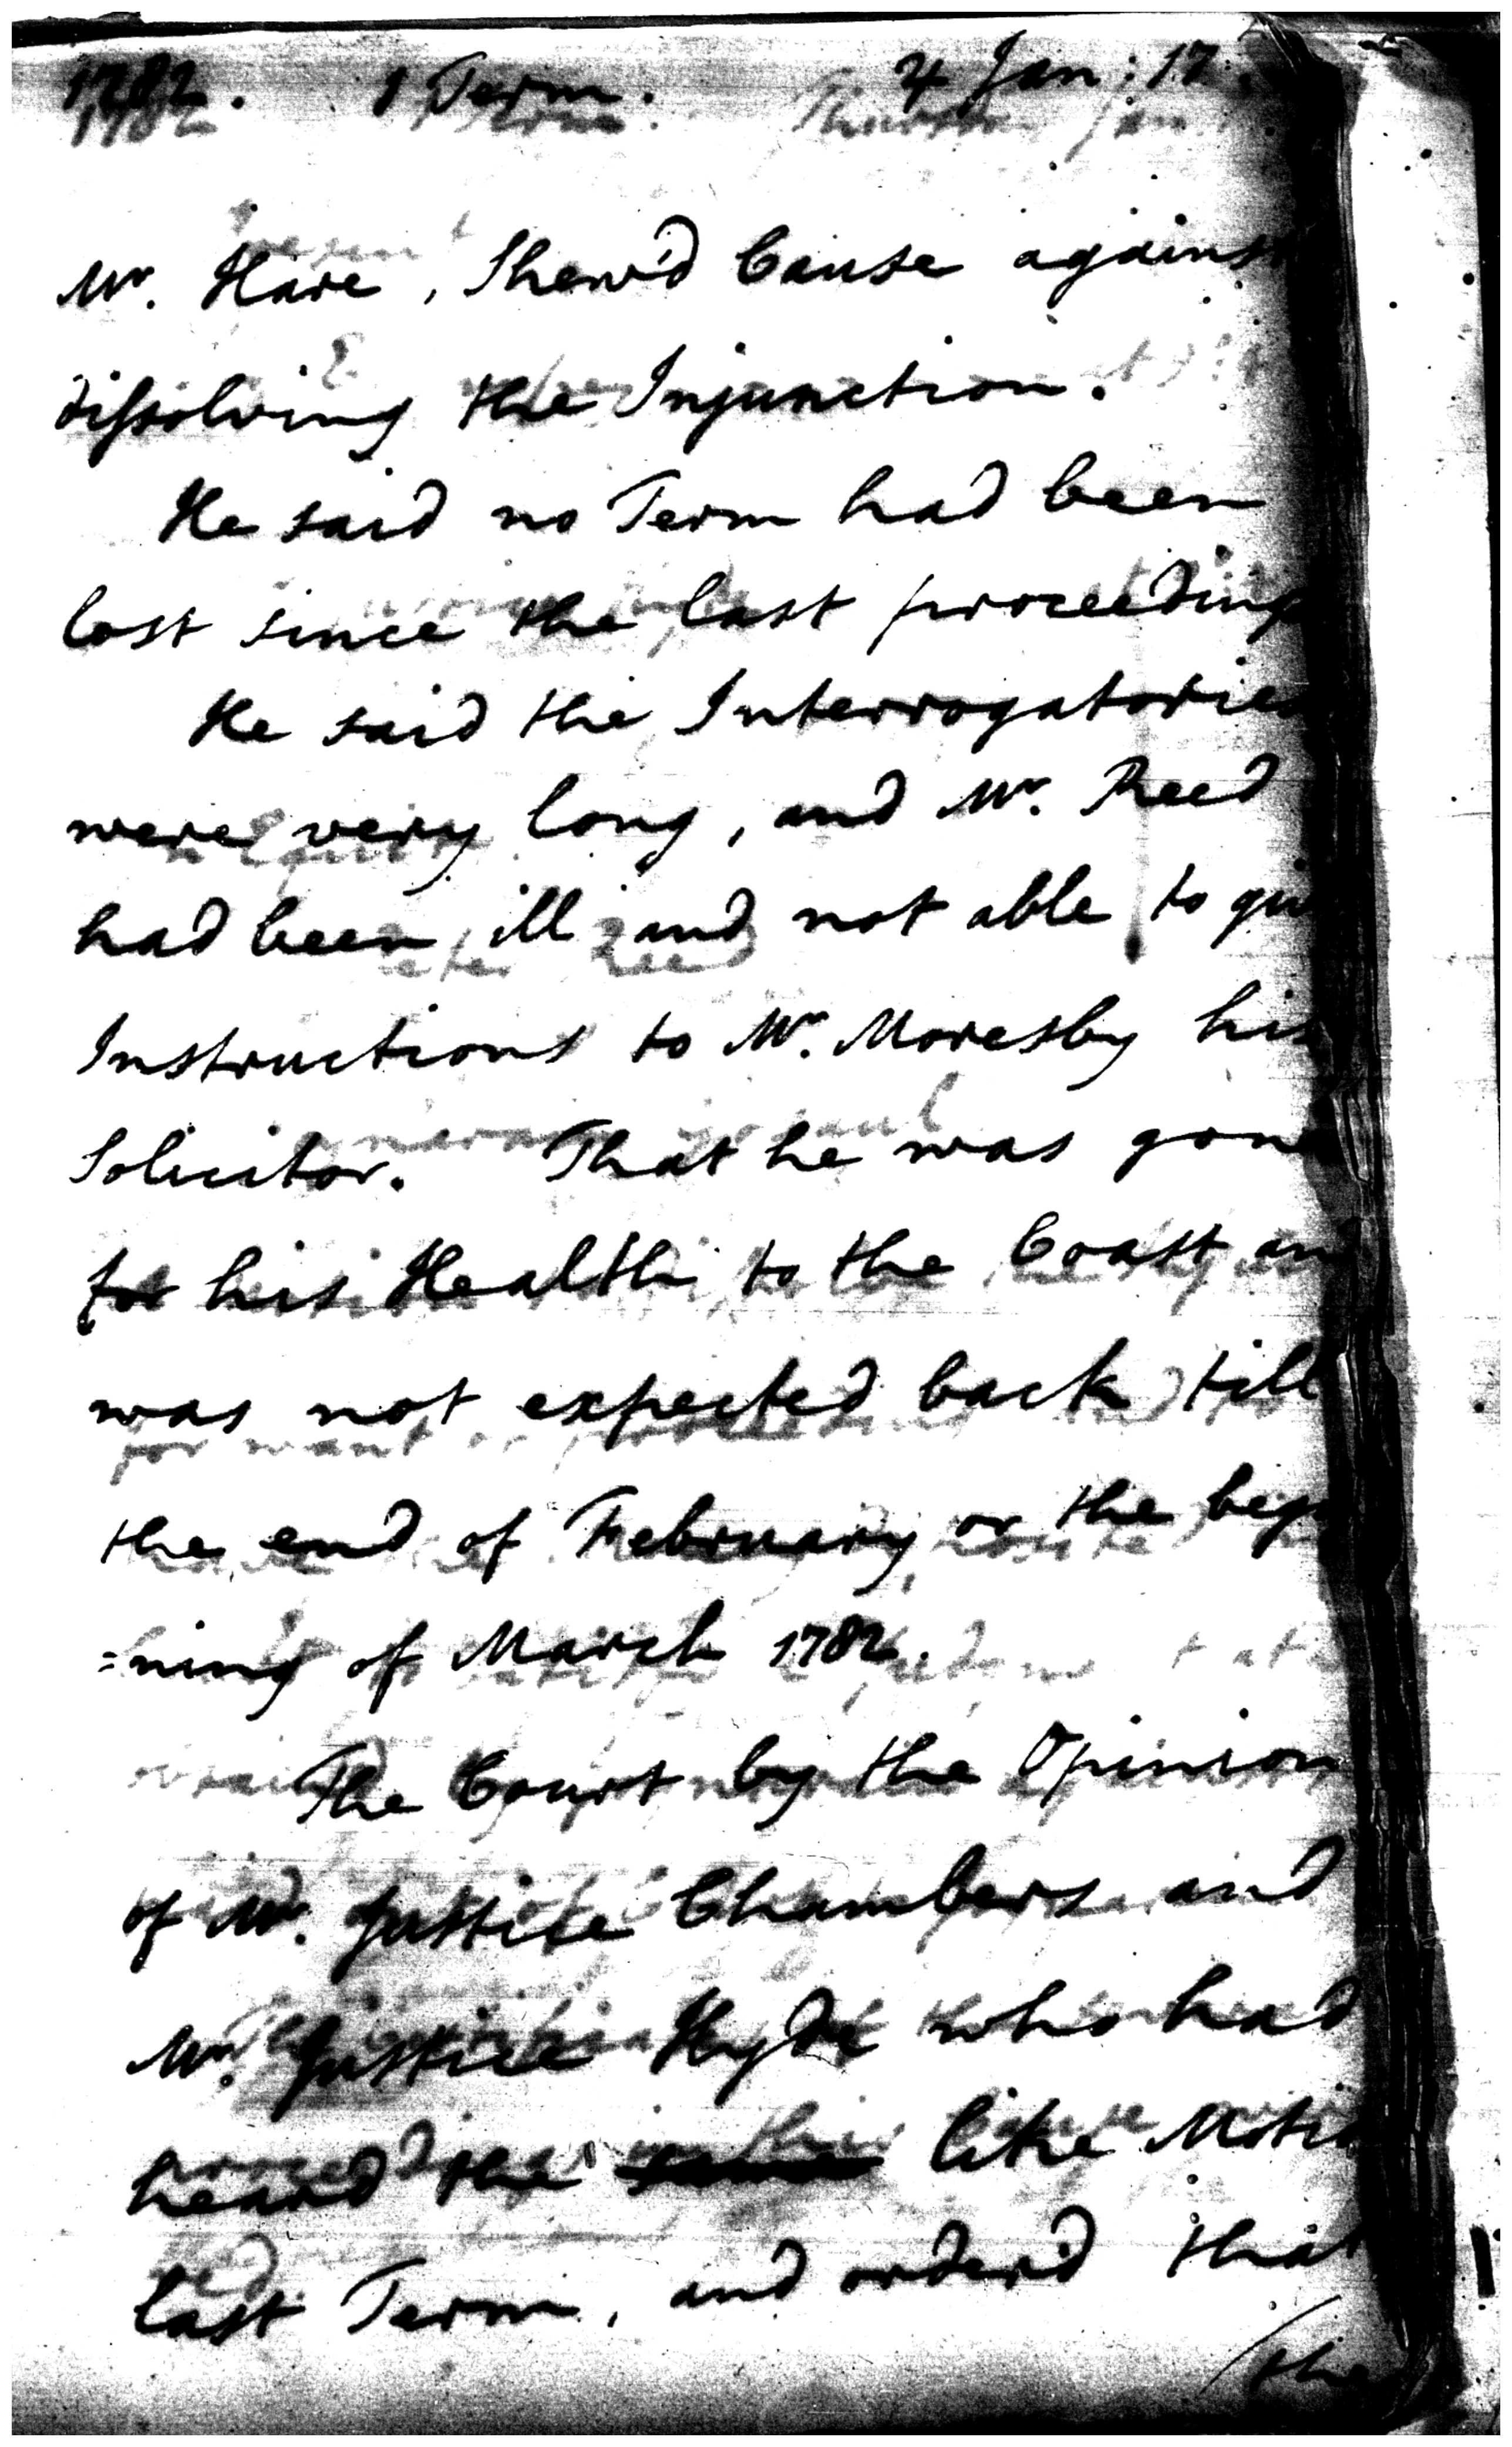 1782. 1 Term. 4 Jan: 17
Mr. Hare, Shew'd Cause against
dissolving the Injunction.
He said no Term had been
lost since the last proceeding
He said the Interrogatories
were very long, and Mr. Reed
had been ill and not able to giv
Instructions to Mr. Moresby his
Solicitor. That he was gone
for his Health to the Coast and
was not expected back till
the end of February or the begi
=ning of March 1782.
The Court by the Opinion
of Mr. Justice Chambers and
Mr. Justice Hyde who had
heard the same like Motio
last Term, and order'd that
(the